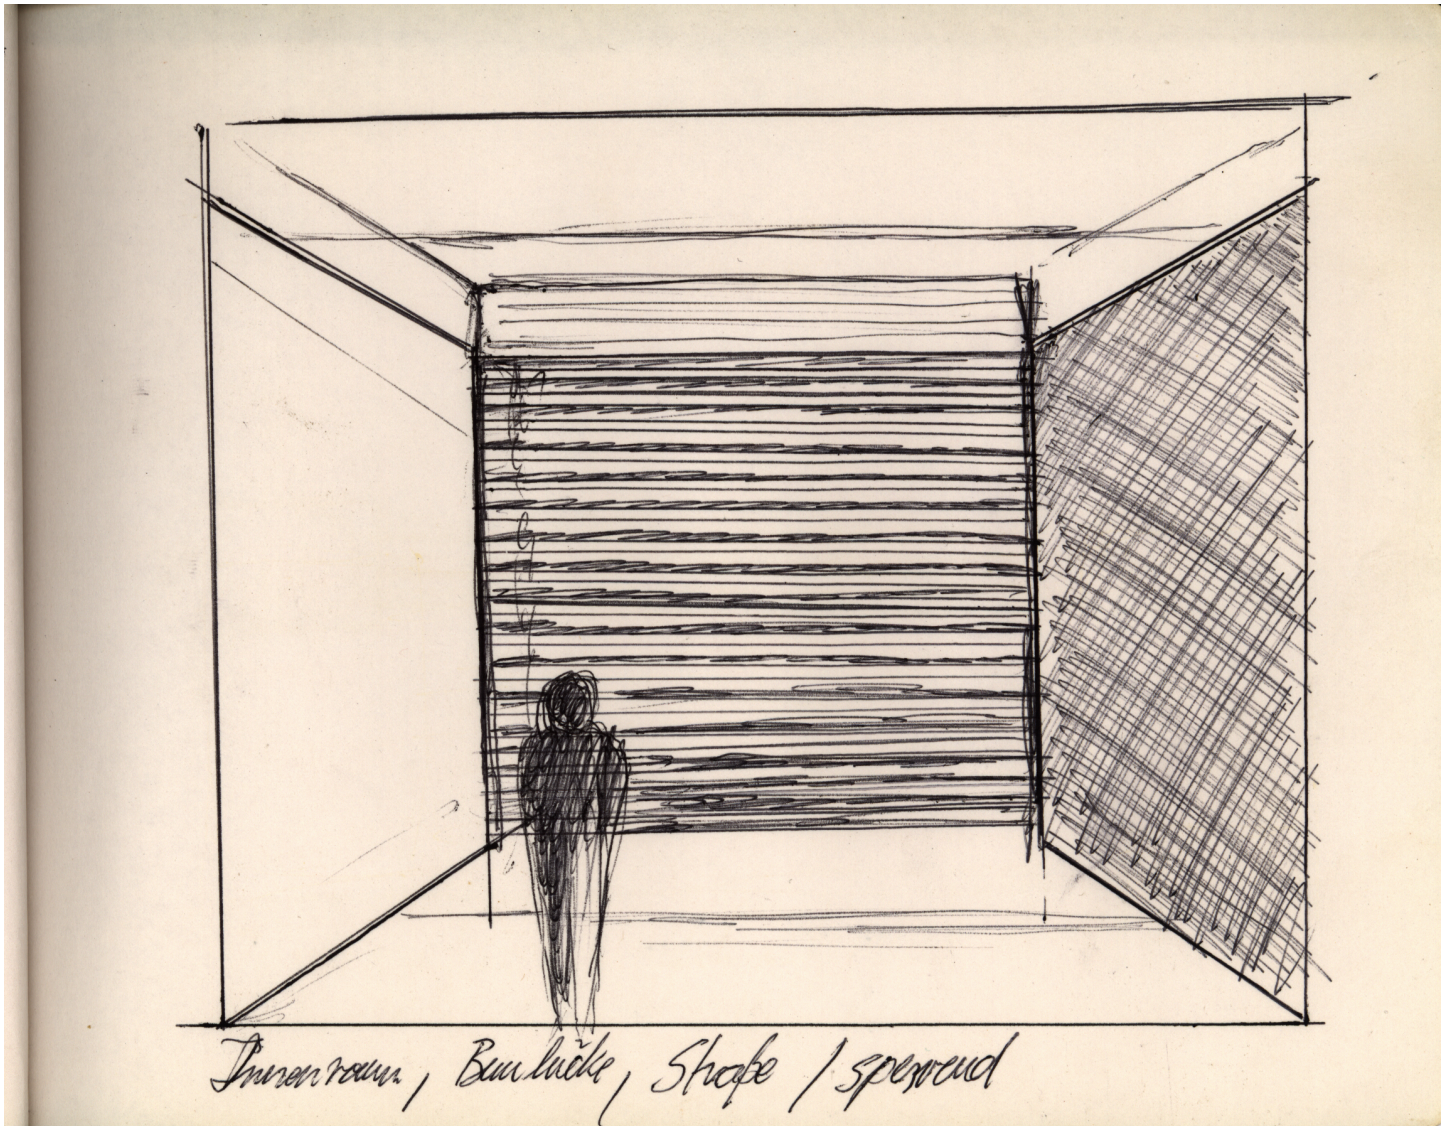 Innenraum, Baulücke, Straße / sperrend